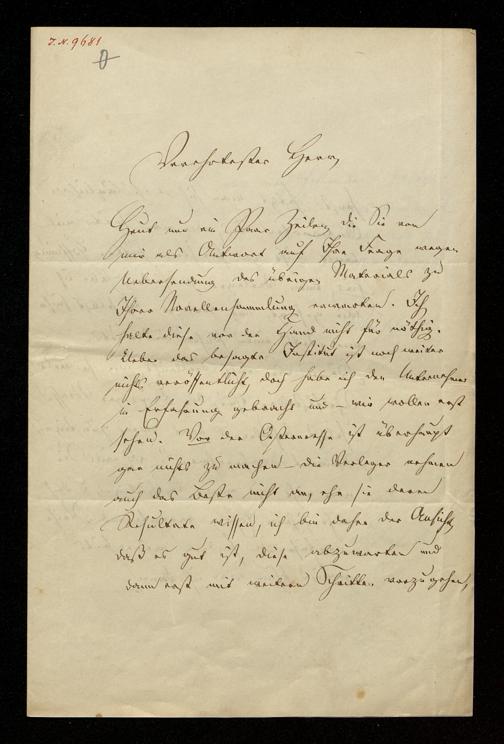 J. N. 9681
Verehrtester Herr,
Heut nur ein Paar Zeilen, die Sie von
mir als Antwort auf Ihre Frage wegen
Uebersendung des übrigen Materials zu
Ihrer Novellensammlung erwarten. Ich
halte diese vor der Hand nicht für nöthig.
Ueber das besagte Institut ist noch weiter
nichts veröffentlicht, doch habe ich den Unternehmer
in Erfahrung gebracht und – wir wollen erst
sehen. Vor der Ostermesse ist überhaupt
gar nichts zu machen – die Verleger nehmen
auch das Beste nicht an, ehe sie deren
Resultate wissen, ich bin daher der Ansicht,
daß es gut ist, diese abzuwarten und
dann erst mit weitern Schritten vorzugehen,